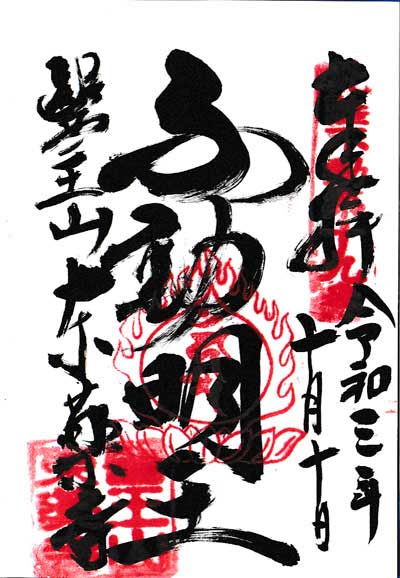 奉拝
令和三年
十月十日
不動明王
醫王山 寺